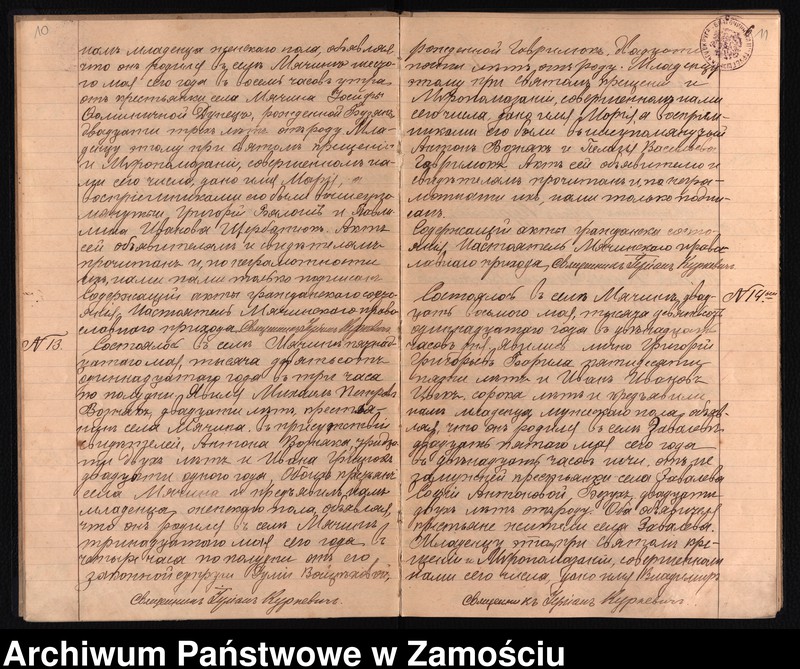 10
намъ младенца женскаго пола, объявляя
что онъ родился въ селѣ Мячинѣ
го мая сего года въ восемь часовъ утра
отъ крестьянки села Мячина
рожденной
двадцати трехъ лѣтъ отъ роду. Мла-
денцу этому при святомъ крещеніи
и Мѵропомазаніи, совершенномъ на-
ми сего числа, дано имя Марія, а
воспріемниками его были вышеупо-
мянутый, Григорій и Павли-
Иванова Актъ
сей объявителю и свидѣтелямъ
прочитанъ и, по неграмотности
ихъ, нами только подписанъ
Содержащій акты гражданскаго состо-
янія, Настоятель Мячинскаго право-
славнаго прихода Священникъ
№ 13.
Состоялось въ селѣ Мячинѣ пятнад-
цатаго мая, тысяча девятьсотъ
одиннадцатаго года въ три часа
по полудни. Явился Михаилъ Петровъ
Вознякъ, двадцати лѣтъ крестья-
нинъ села Мячина. Въ присутствіи
свидѣтелей, Антона Возняка, тридца-
ти двухъ лѣтъ и Ивана
двадцати одного года, обоихъ крестьянъ
села Мячина и предъявилъ намъ
младенца женскаго пола, объявляя,
что онъ родился въ селѣ Мячинѣ
тринадцатаго мая сего года въ
четыре часа по полудни отъ его
законной супруги Юліи Войцѣховой,
Священникъ
11
рожденной Гаврилюкъ, двадцати
лѣтъ отъ роду. Младенцу
этому при святомъ крещеніи и
Мѵропомазаніи, совершенномъ нами
сего числа, дано имя Марія, а воспріем-
никами его были вышеупомянутый
Антонъ Вознякъ и Пелагія Васильева
Гаврилюкъ. Актъ сей объявителю и
свидѣтелямъ прочитанъ и, по негра-
мотности ихъ, нами только подпи-
санъ.
Содержащій акты гражданскаго состо-
янія, Настоятель Мячинскаго право-
славнаго прихода, Священникъ
№ 14.
Состоялось въ селѣ Мячинѣ двад-
цать восьмого мая, тысяча девятьсотъ
одиннадцатаго года въ двѣнадцать
часовъ дня, явились лично Григорій
Григорьевъ пятидесяти
лѣтъ и Иванъ Ивановъ
сорока лѣтъ и предъявили
намъ младенца мужескаго пола, объяв-
ляя, что онъ родился въ селѣ Завалевѣ
двадцать пятаго мая сего года
въ двѣнадцать часовъ ночи, отъ не-
замужней крестьянки села Завалева
Софіи Антоновой, двадцати
двухъ лѣтъ отъ роду. Оба
крестьяне жители села Завалева.
Младенцу этому при святомъ кре-
щеніи и Мѵропомазаніи, совершенномъ
нами сего числа, дано имя Владиміръ
Священникъ
Archiwum Państwowe w Zamościu